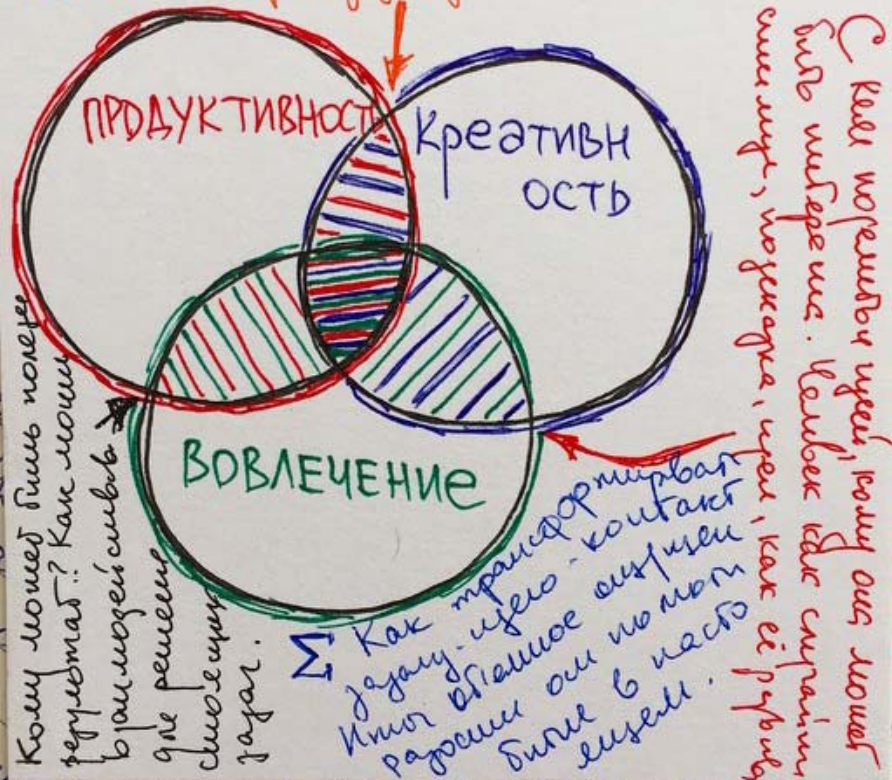 ПРОДУКТИВНОСТ
Креативн
ость
ВОВЛЕЧЕНИе
С кем поделиться идеей, кому она может
быть интересна. Человек как случайный
стимул, подсказка, идея, как её развив
Кому может быть полезен
результат? Как можем
взаимодействовать
для решения
смежных
задач.
Σ Как трансформироват
задачу-идею-контакт
Итог объемное ощущен
радости от помощи
бытие в насто
ящем.